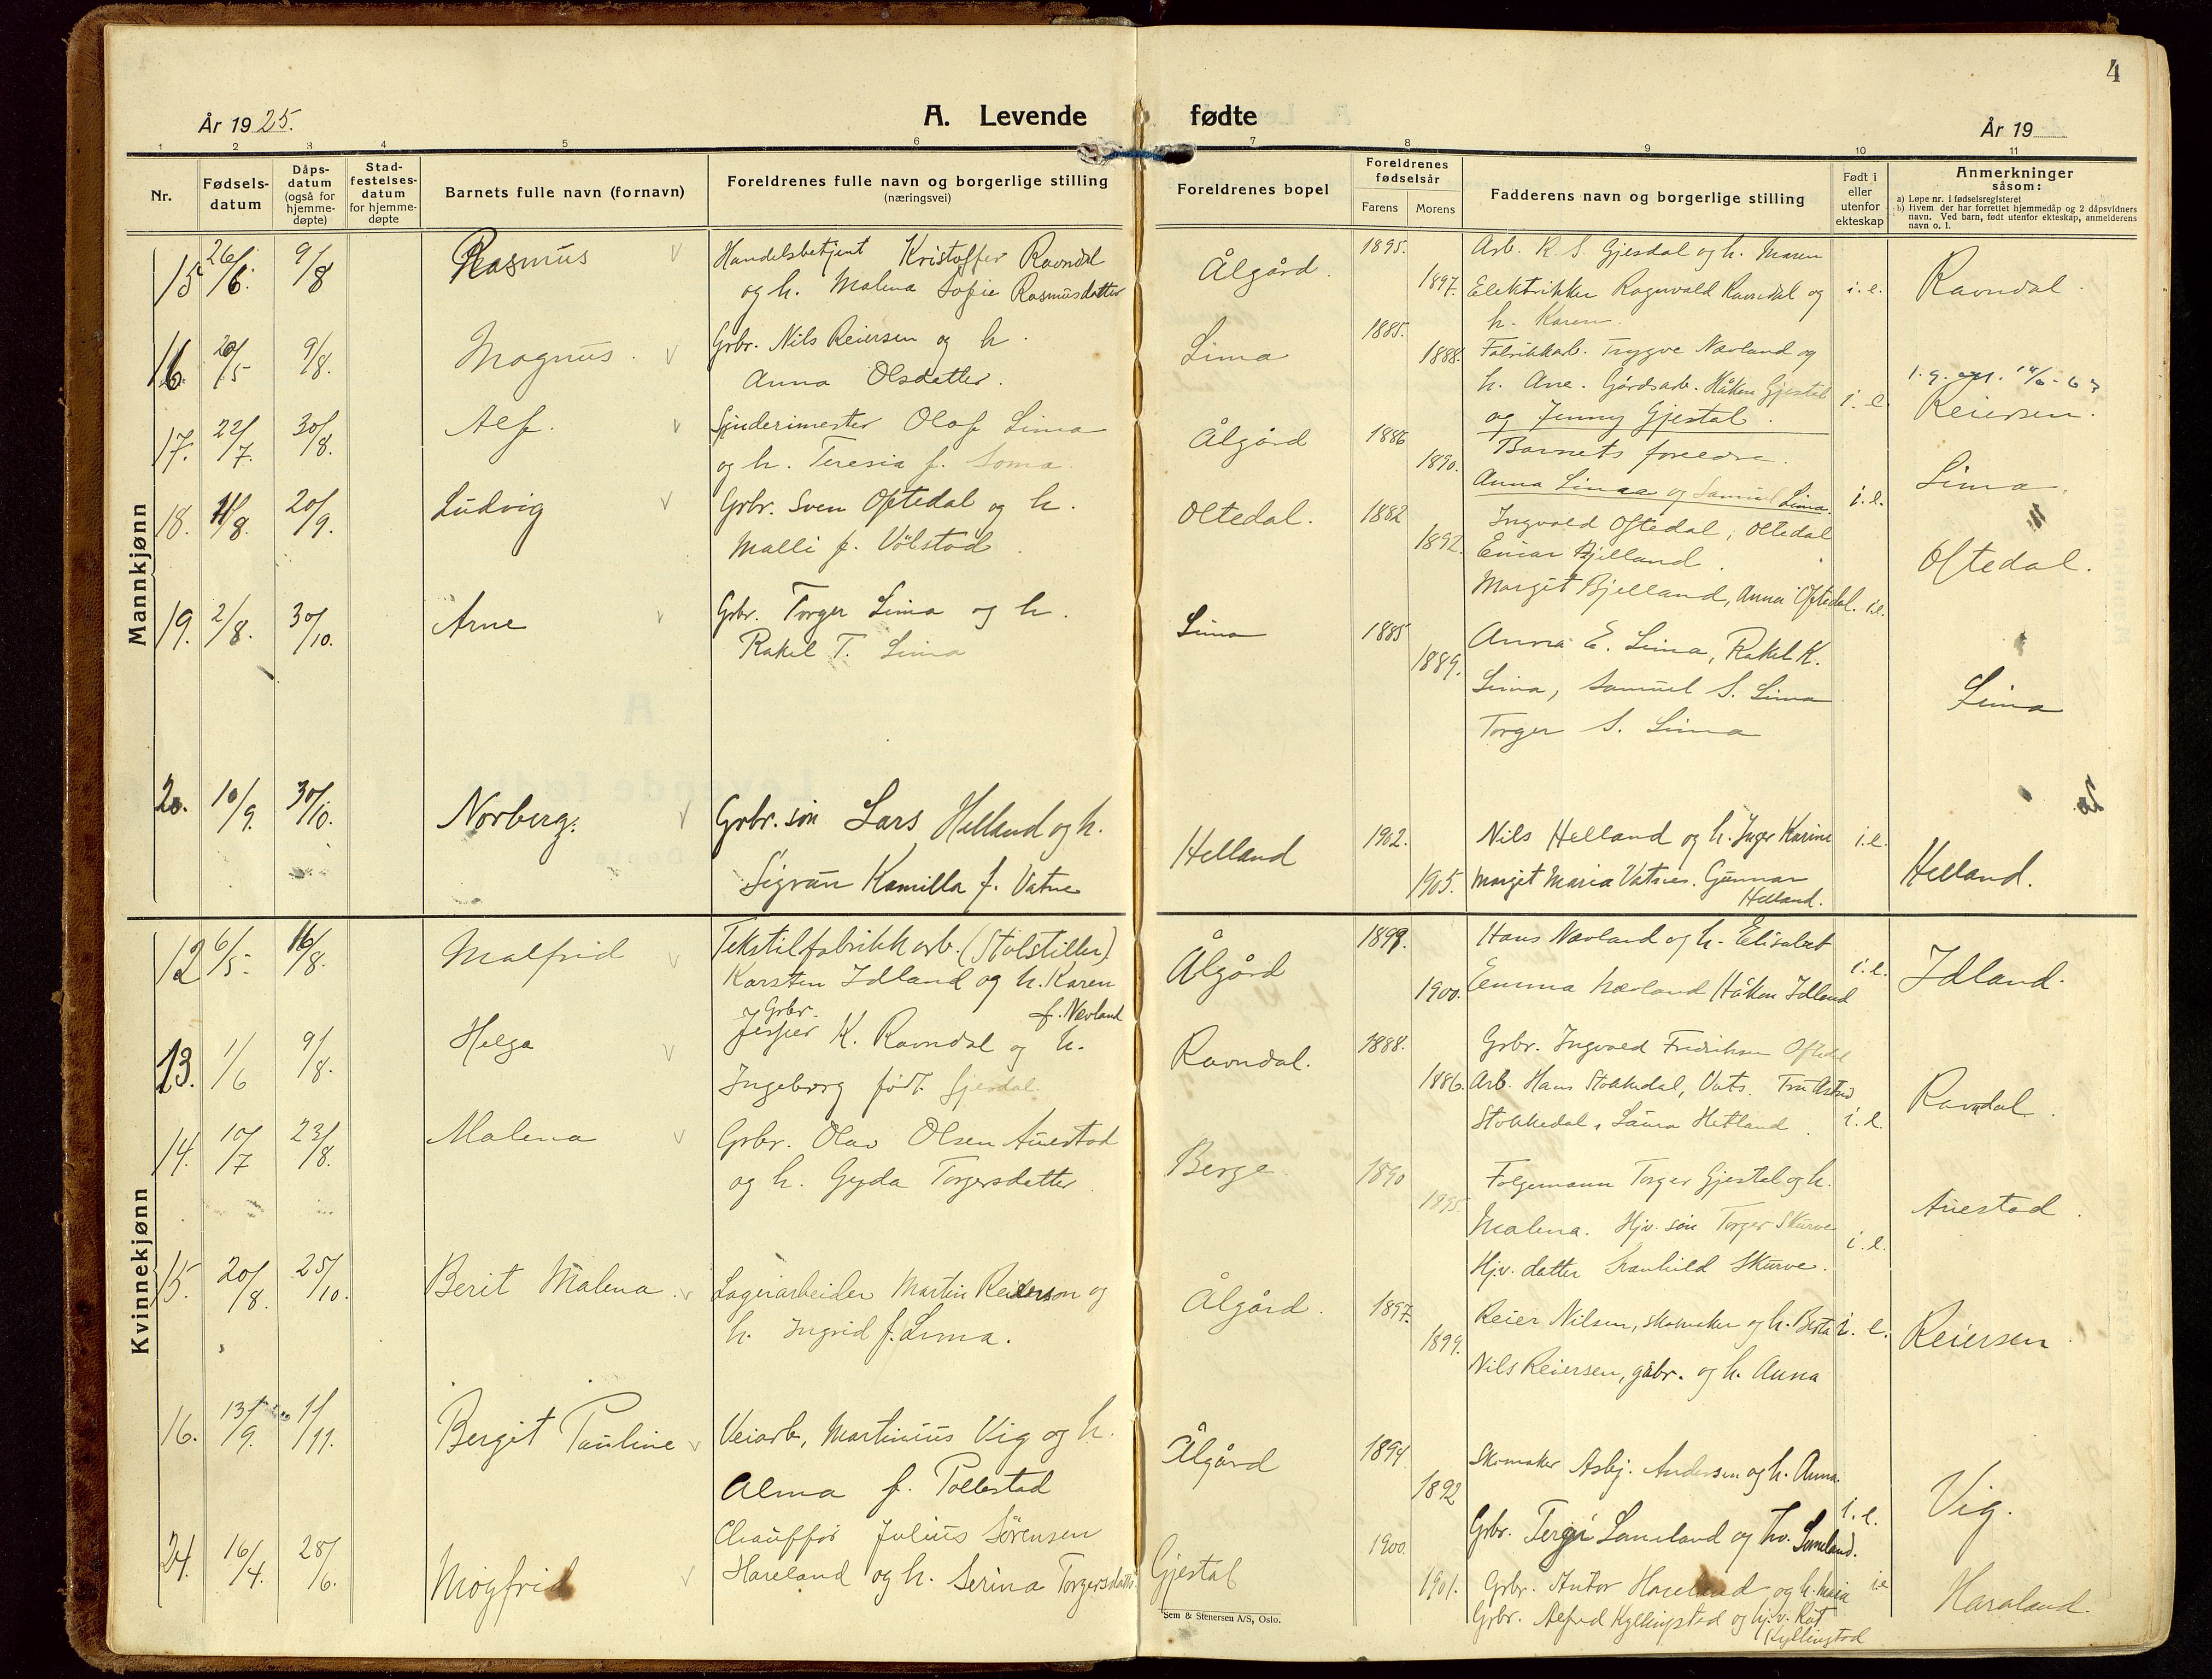 4
År 1925.
A. Levende fødte
År 19
1 2 3 4 5 6 7 8 9 10 11
Nr.
Fødsels-
datum
Dåps-
datum
(også for
hjemme-
døpte)
Stad-
festelses-
datum
for hjemme-
døpte
Barnets fulle navn (fornavn)
Foreldrenes fulle navn og borgerlige stilling
(næringsvei)
Foreldrenes bopel
Foreldrenes
fødselsår
Farens Morens
Fadderens navn og borgerlige stilling
Født i
eller
utenfor
ekteskap
Anmerkninger
såsom:
a) Løpe nr. i fødselsregisteret
b) Hvem der har forrettet hjemmedåp og 2 dåpsvidners
navn. Ved barn, født utenfor ekteskap, anmelderens
navn o. l.
Mannkjønn
15 26/6. 9/8 Rasmus
Handelsbetjent Kristoffer Ravndal
og h. Malena Sofie Rasmusdatter
Ålgård. 1895. 1897.
Arb. R. S. Gjesdal og h. Maren
Elektrikker Ragnvald Ravndal og
h. Karen.
i. e. Ravndal.
16. 20/5 9/8. Magnus.
Grbr. Nils Reiersen og h.
Anna Olsdatter.
Lima 1885. 1888.
Fabrikkarb. Trygve Nævland og
h. Ane. Gårdsarb. Håken Gjestal
og Jenny Gjestal.
i. e. Reiersen.
17. 22/7. 30/8. Alf.
Spinderimester Olaf Lima
og h. Teresia f. Soma.
Ålgård 1886 1890.
Barnets foreldre.
Anna Limaa og Samuel Lima.
i. e. Lima.
18. 11/8. 20/9. Ludvig
Grbr. Sven Oftedal og h.
Malli f. Vølstad.
Oltedal. 1882 1892.
Ingvald Oftedal, Oltedal
Einar Bjelland.
Margit Bjelland, Anna Oftedal.
i.e. Oftedal.
19. 2/8. 30/10. Arne
Grbr. Torger Lima og h.
Rakel T. Lima
Lima 1885 1889.
Anna E. Lima, Rakel K.
Lima, Samuel S. Lima
Torger S. Lima
Lima
20. 10/9. 30/10. Norberg.
Grbr. søn Lars Helland og h.
Sigrun Kamilla f. Vatne
Helland 1902. 1905.
Nils Helland og h. Inger Karine
Margit Maria Vatnes. Gunnar
Helland.
i.e. Helland.
Kvinnekjønn
12 6/5. 16/8. Malfrid
Tekstilfabrikkarb. (Stolstiller)
Karsten Idland og h. Karen
f. Nævland
Ålgård 1899. 1900.
Hans Nævland og h. Elisabet
Emma Nævland Håken Idland
i. e. Idland.
13. 1/6 9/8. Helga
Grbr.
Jesper K. Ravndal og h.
Ingeborg født Gjesdal.
Ravndal. 1888. 1886.
Grbr. Ingvald Fredriksen Oftedal
Arb. Hans Stokkedal, Vats. Fru Astrid
Stokkedal, Laura Hetland.
i. e. Ravndal.
14. 10/7 23/8. Malena
Grbr. Olav Olsen Auestad
og h. Gyda Torgersdatter.
Berge. 1890 1895.
Folgemann Torger Gjestal og h.
Malena. Hjv. søn Torger Skurve
Hjv. datter Skurve.
i. e. Auestad.
15. 20/8. 25/10. Berit Malena.
Lagerarbeider Martin Reierson og
h. Ingrid f. Lima.
Ålgård. 1897. 1899.
Reier Nilsen, skomaker og h. Berta
Nils Reiersen, gåbr. og h. Anna
i. e. Reiersen
16. 13/9. 1/11. Bergit Pauline
Veiarb. Martinius Vig og h.
Alma f. Pollestad
Ålgård 1894. 1892
Skomaker Asbj. Andersen og h. Anna.
Grbr. Tergei Lomeland og
i. e. Vig.
24. 16/4. 28/6. Møyfrid
Chauffør Julius Sørensen
Hareland og h. Serina Torgersdatter.
Gjestal 1900. 1901.
Grbr. Antor Hareland og h. Maia
Grbr. Alfred Kyllingstad og hj.v. Rut
Kyllingstad
i.e Haraland.
Sem & Stenersen A/S, Oslo.